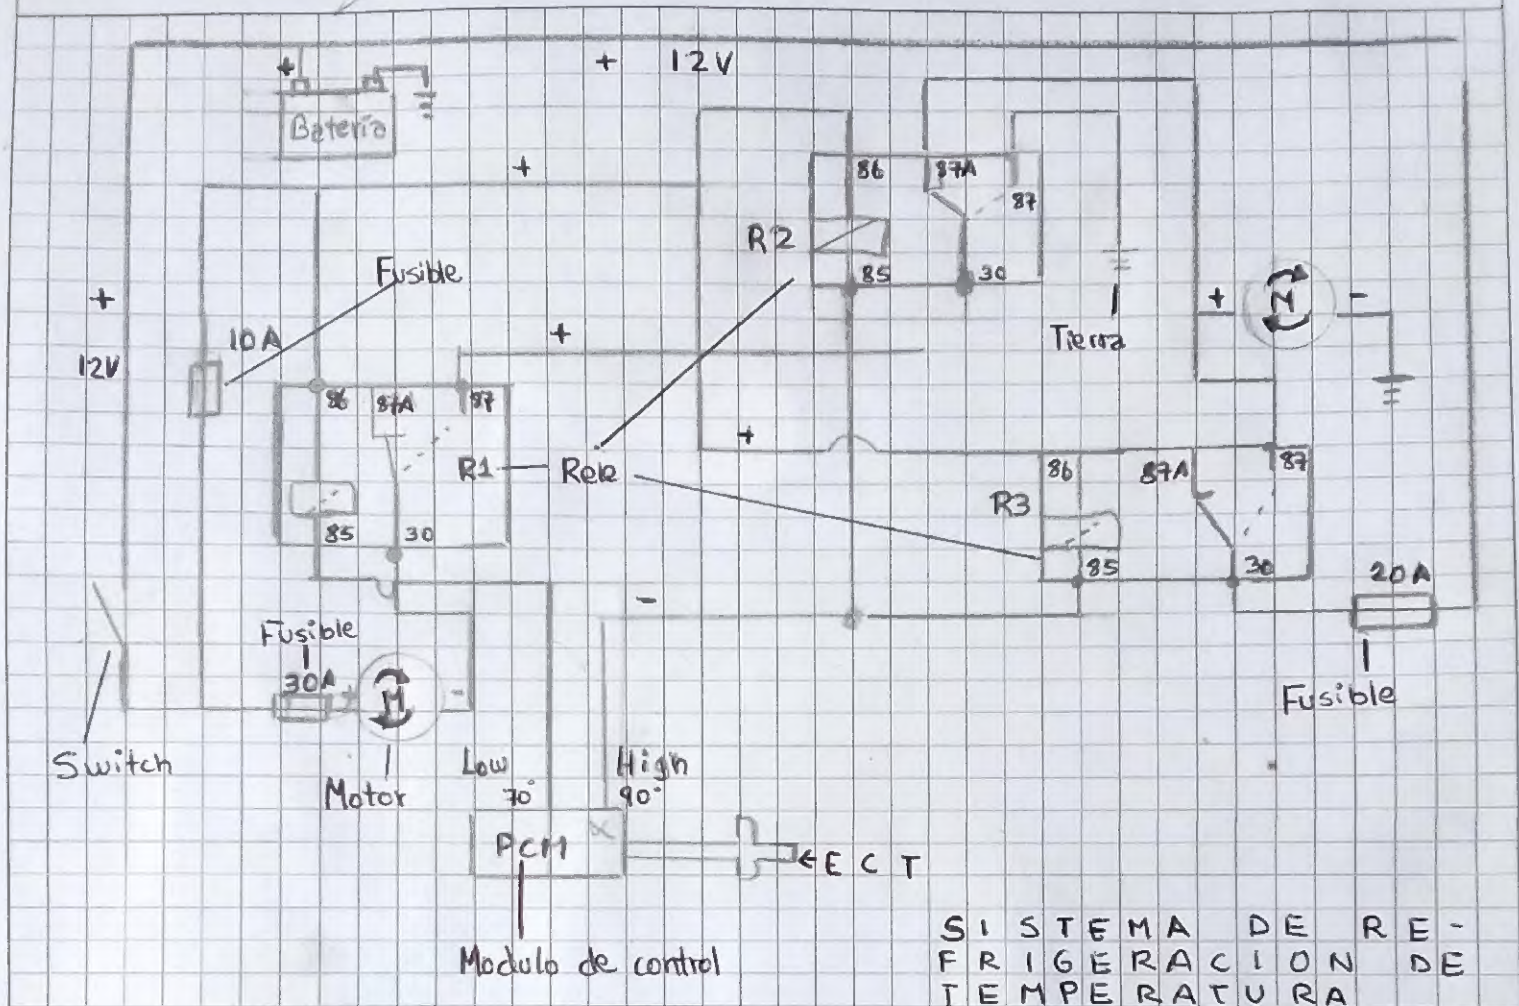 + 12V
+
Bateria
+
86 87A
87
R2
85 30
Fusible
+
12V
10A
+
Tierra
+ M -
86 87A 87
R1 Rele
+
86 87A 87
R3
85 30
85 30
20A
-
Fusible
30A + M -
Fusible
Switch
Motor
Low
70°
High
90°
PCM
←ECT
Modulo de control
SISTEMA DE RE-
FRIGERACION DE
TEMPERATURA